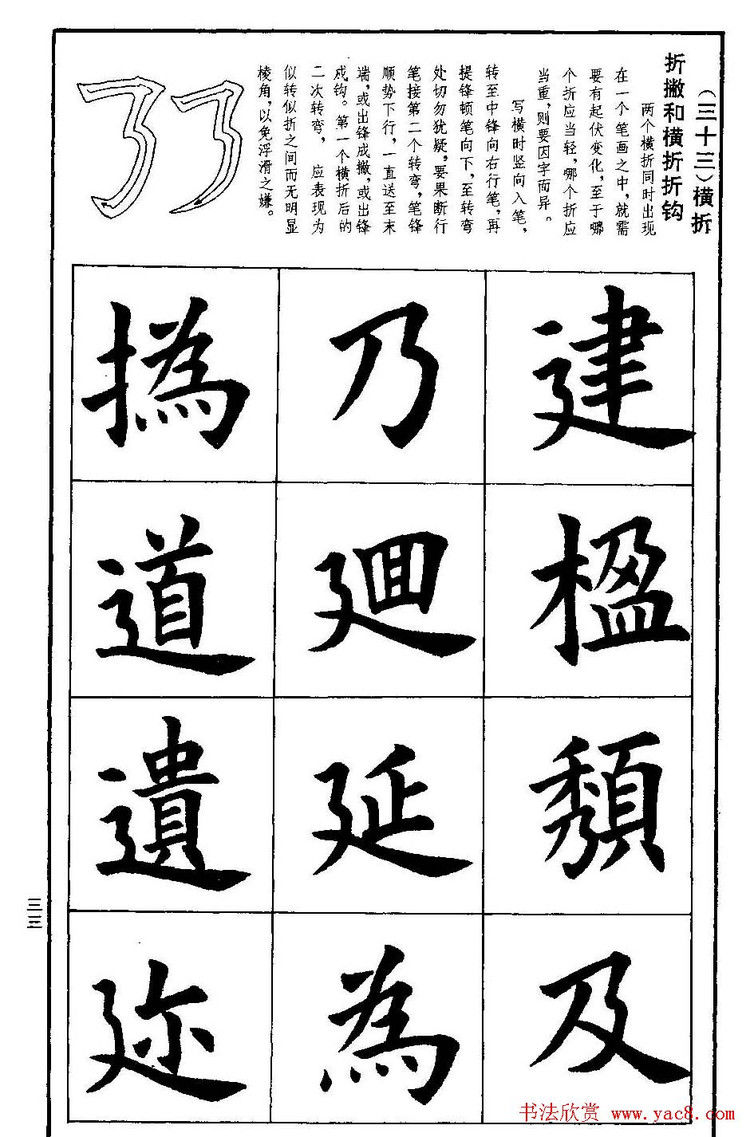 （三十三）横折
折撇和横折折钩
两个横折同时出现
在一个笔画之中，就需
要有起伏变化，至于哪
个折应当轻，哪个折应
当重，则要因字而异。
写横时竖向入笔，
转至中锋向右行笔，再
提锋顿笔向下，至转弯
处切勿犹疑，要果断行
笔接第二个转弯，笔锋
顺势下行，一直送至末
端，或出锋成撇，或出锋
成钩。第一个横折后的
二次转弯，应表现为
似转似折之间而无明显
棱角，以免浮滑之嫌。
建
楹
及
乃
廻
延
為
撝
道
遺
迩
三三
书法欣赏 www.yac8.com